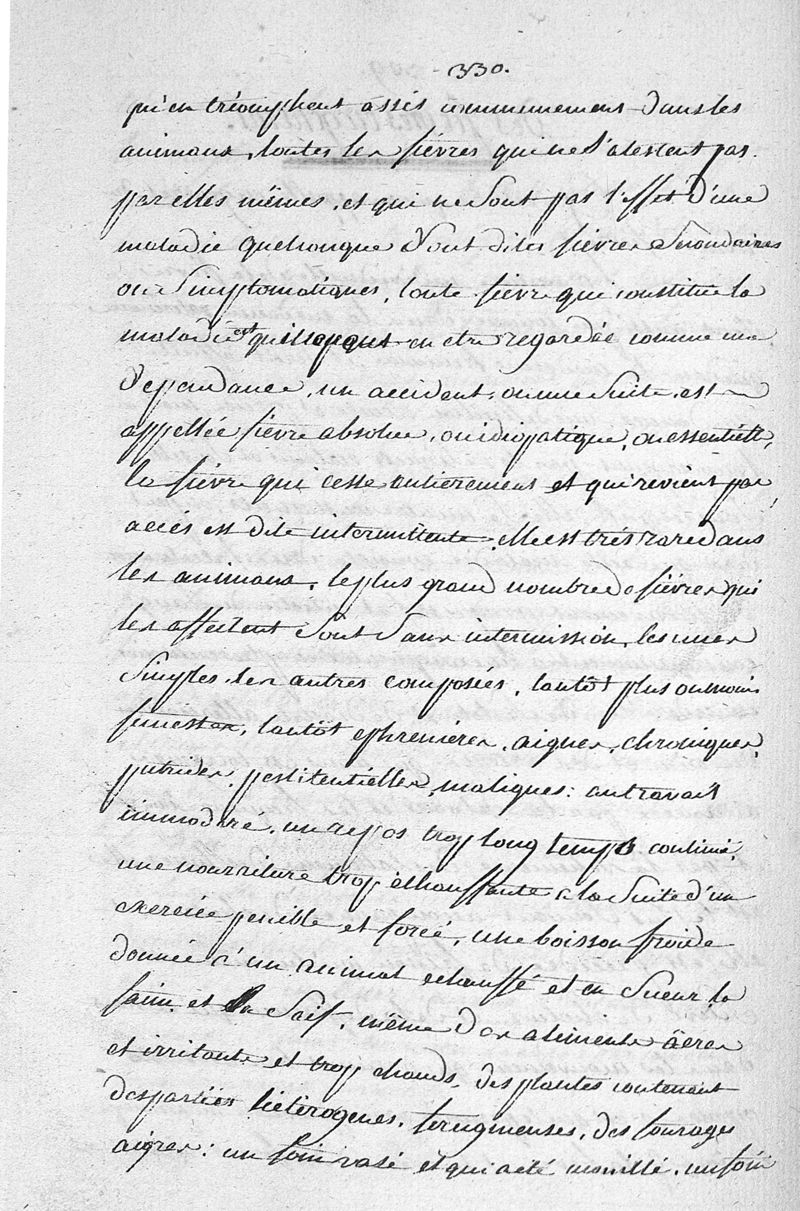 330.
qu'en trèomphent assés communement dans les
animaux, toutes les fièvres que ne s'atestent pas
par elles mêmes, et qui ne sont pas l'effet d'une
maladie quelconque sont dites fièvres secondaires
ou simptomatiques, toute fièvre qui constitue la
maladie et qui en etre regardée comme une
dépendance, un accident, ou une suite, est
appellée fièvre absolue, ou idiopatique, ou essentielle,
la fièvre qui cesse entierement et qui revient par
accès est dite intermittente. Elle est très rare dans
les animaux, le plus grand nombre de fièvres qui
les affectent sont sans intermission, les unes
simples, les autres composées, tantôt plus ou moins
funestes, tantôt ephemères, aigues, chroniques,
putrides, pestilentielles, maliques: un travail
immodéré, un repos trop long temps continué,
une nourriture trop échauffante à la suite d'un
exercice penible et forcé, une boisson froide
donnée à un animal echauffé et en sueur, la
faim et la soif, même des aliments âcres
et irritants et trop chauds, des plantes contenant
des parties hétèrogenes, des fourages
aigres: un foin vasé et qui a été mouillé, un foin